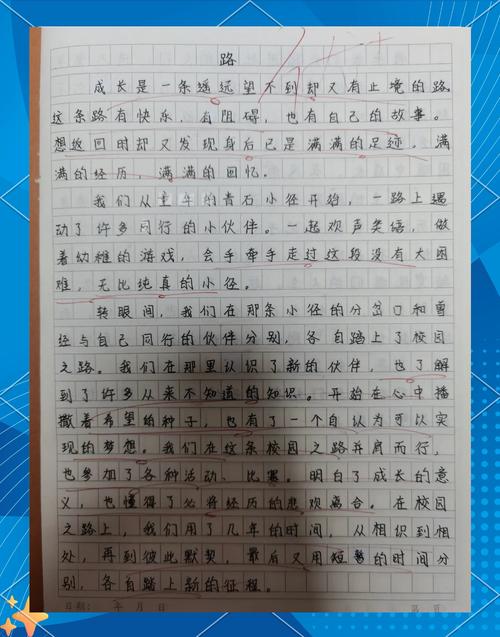 路
成长是一条遥远望不到却又有止境的路
这条路有快乐、有阻碍，也有自己的故事。
想返回时却又发现身后已是满满的足迹，满
满的经历，满满的回忆。
我们从童年的青石小径开始，一路上遇
动了许多同行的小伙伴。一起欢声笑语，做
着幼稚的游戏，会手牵手走过这段没有大困
难，无比纯真的小径。
转眼间，我们在那条小径的分岔口和曾
经与自己同行的伙伴分别，各自踏上了校园
之路。我们在那里认识了新的伙伴，也了解
到了许多从来不知道的知识。开始在心中播
撒着希望的种子，也有了一个自认为可以实
现的梦想。我们在这条校园之路并肩而行，
也参加了各种活动、比赛。明白了成长的意
义，也懂得了必将经历的悲欢离合。在校园
之路上，我们用了几年的时间，从相识到相
处，再到彼此默契，最后又用短暂的时间分
别，各自踏上新的征程。
日期： 年 月 日 第 页